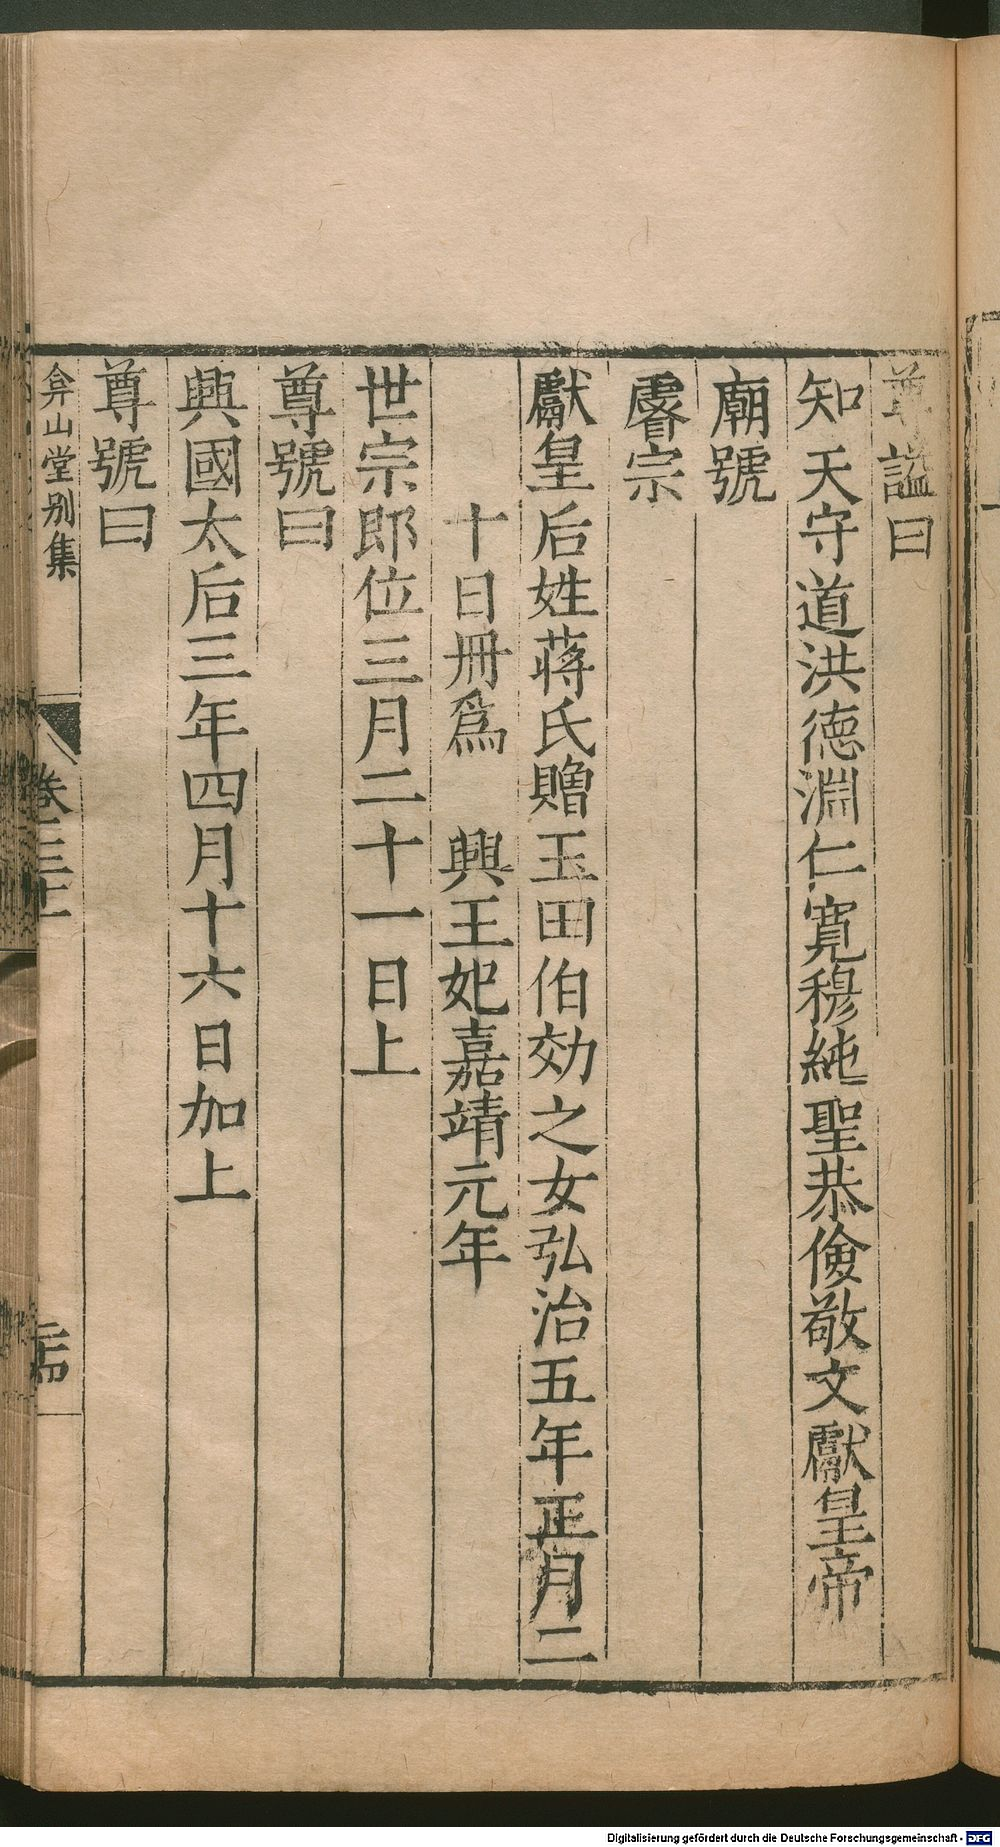 尊謚曰
知天守道洪德淵仁寛穆純聖恭儉敬文獻皇帝
廟號
睿宗
獻皇后姓蔣氏贈玉田伯効之女弘治五年正月二
十日冊爲　興王妃嘉靖元年
世宗即位三月二十一日上
尊號曰
興國太后三年四月十六日加上
尊號曰
弇山堂别集
卷三十一
Digitalisierung gefördert durch die Deutsche Forschungsgemeinschaft - DFG